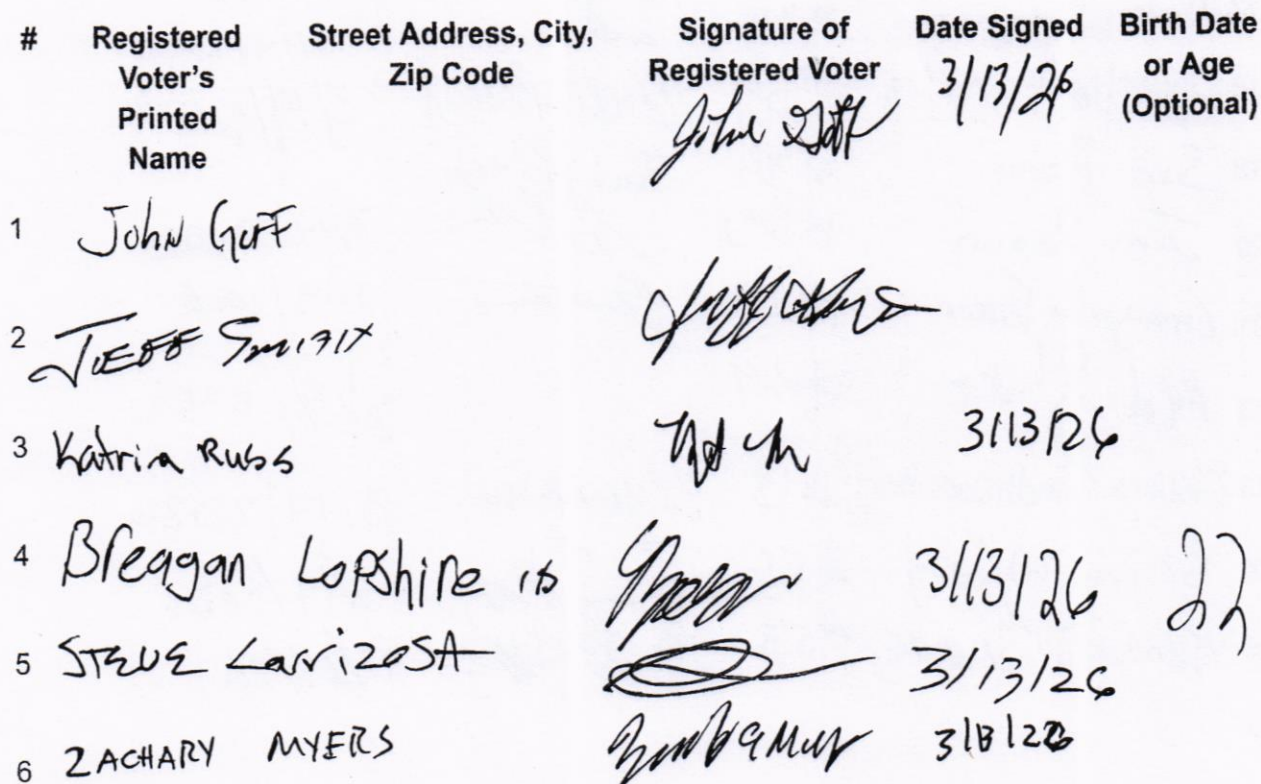 # Registered Voter's Printed Name Street Address, City, Zip Code Signature of Registered Voter Date Signed Birth Date or Age (Optional)
John Goff 3/13/26
1 John Goff
2 JEFF Smith
3 Katria Russ 3/13/26
4 Breagan Lopshire 3/13/26 22
5 STEVE LarrizoSA 3/13/26
6 ZACHARY MYERS